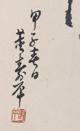 甲子春日
董壽平